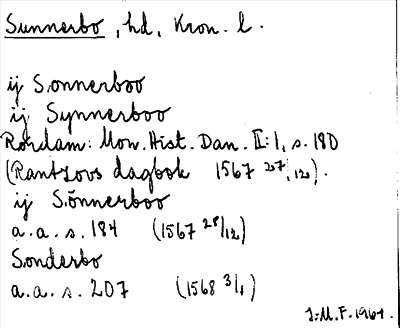 Sunnerbo, hd, Kron. l.
ij Sonnerboo
ij Synnerboo
Rørdam: Mon. Hist. Dan. II:1, s. 180
(Rantzovs dagbok 1567 20/7, 12).
ij Sönnerboo
a.a. s. 184 (1567 28/12)
Sonderbo
a.a. s. 207 (1568 3/1)
J.M.F. 1964.